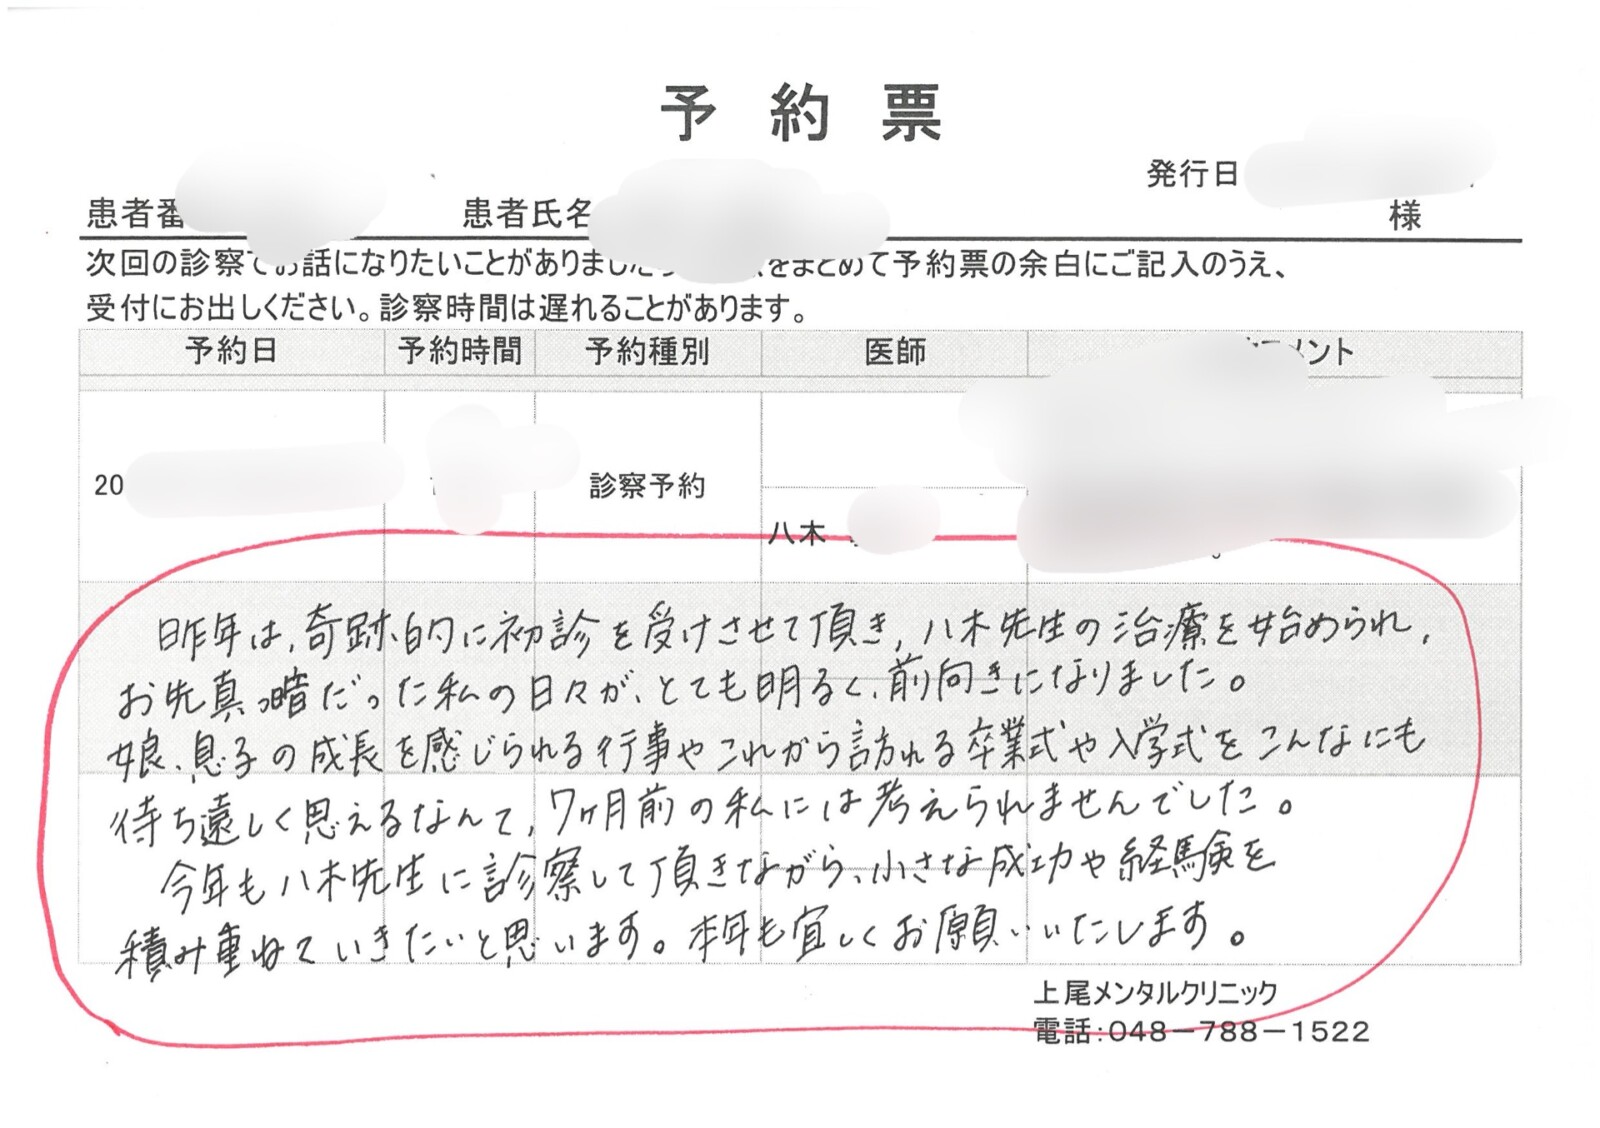 予約票
発行日
患者番 患者氏名 様
次回の診察でお話になりたいことがありましたら をまとめて予約票の余白にご記入のうえ、
受付にお出しください。診察時間は遅れることがあります。
予約日 予約時間 予約種別 医師 コメント
20 診察予約
八木
昨年は、奇跡的に初診を受けさせて頂き、八木先生の治療を始められ、
お先真っ暗だった私の日々が、とても明るく、前向きになりました。
娘、息子の成長を感じられる行事やこれから訪れる卒業式や入学式をこんなにも
待ち遠しく思えるなんて、7ヶ月前の私には考えられませんでした。
今年も八木先生に診察して頂きながら、小さな成功や経験を
積み重ねていきたいと思います。本年も宜しくお願いいたします。
上尾メンタルクリニック
電話:048-788-1522